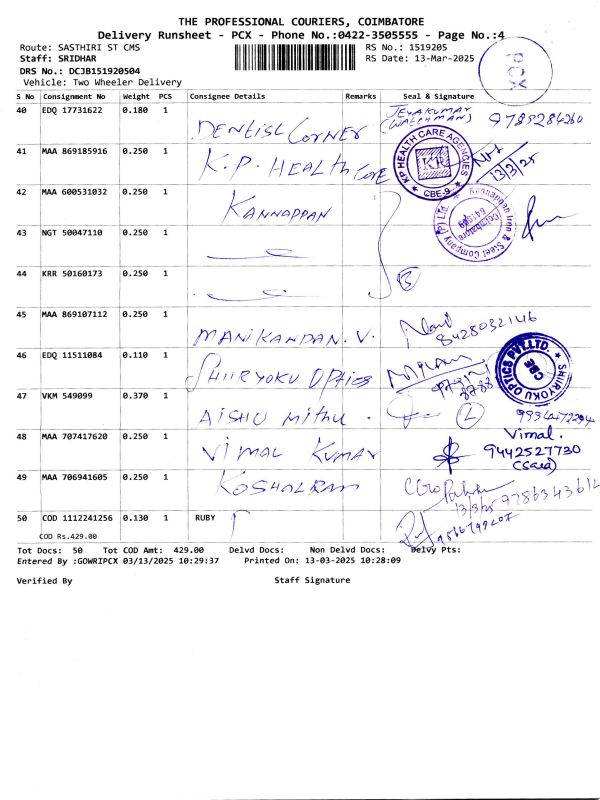 THE PROFESSIONAL COURIERS, COIMBATORE
Delivery Runsheet - PCX - Phone No.:0422-3505555 - Page No.:4
Route: SASTHIRI ST CMS
RS No.: 1519205
Staff: SRIDHAR
RS Date: 13-Mar-2025
DRS No.: DCJB151920504
Vehicle: Two Wheeler Delivery
PCX
S No Consignment No Weight PCS Consignee Details Remarks Seal & Signature
40 EDQ 17731622 0.180 1 DENTIST CORNER JEYAKUMAR
(WATCHMAN) 9789284260
41 MAA 869185916 0.250 1 K.P. HEALTH CARE
KP HEALTH CARE AGENCIES
KP
CBE-9
13/3/25
42 MAA 600531032 0.250 1 KANNAPPAN
Kannandan Iren & Steel Company (P) Ltd
Coimbatore
43 NGT 50047110 0.250 1
44 KRR 50160173 0.250 1
45 MAA 869107112 0.250 1 MANIKANDAN. V.
8428032146
46 EDQ 11511084 0.110 1 SHIIRYOKU OPTICS
SHIIRYOKU OPTICS PVT.LTD.
CBE
47 VKM 549099 0.370 1 AISHU MITHU.
48 MAA 707417620 0.250 1 VIMAL KUMAR
Vimal.
9442527730
49 MAA 706941605 0.250 1 KOSHALRAM
13/3/25
50 COD 1112241256 0.130 1 RUBY
COD Rs.429.00
Tot Docs: 50 Tot COD Amt: 429.00 Delvd Docs: Non Delvd Docs: Delvy Pts:
Entered By :GOWRIPCX 03/13/2025 10:29:37 Printed On: 13-03-2025 10:28:09
Verified By Staff Signature